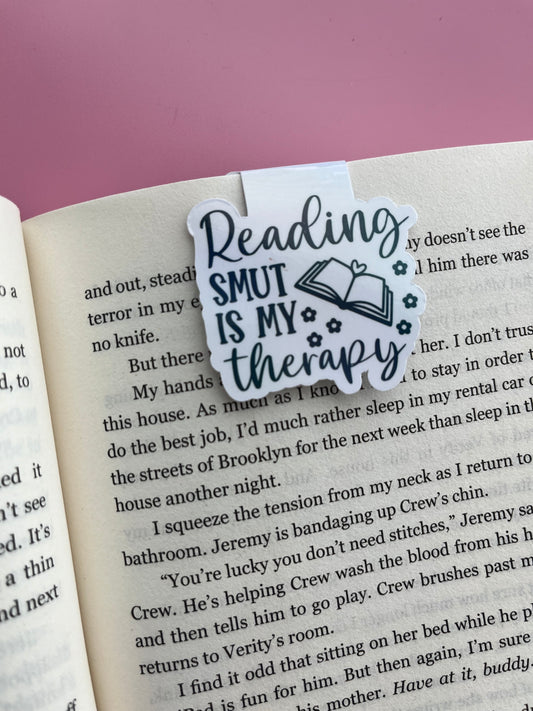 Reading
SMUT
IS MY
therapy
o a
not
d, to
ed it
n't see
ed. It's
a thin
nd next
and out, steadi
doesn't see the
terror in my e
him there was
no knife.
But there
her. I don't trus
My hands
to stay in order t
this house. As much as I kno
do the best job, I'd much rather sleep in my rental car o
the streets of Brooklyn for the next week than sleep in th
house another night.
I squeeze the tension from my neck as I return to
bathroom. Jeremy is bandaging up Crew's chin.
"You're lucky you don't need stitches," Jeremy sa
Crew. He's helping Crew wash the blood from his h
and then tells him to go play. Crew brushes past m
returns to Verity's room.
I find it odd that sitting on her bed while he pl
iPad is fun for him. But then again, I'm sure
his mother. Have at it, buddy.